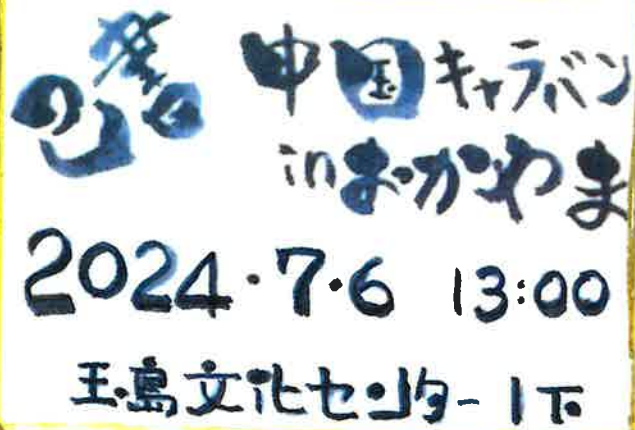 中国キャラバン
inおかやま
2024・7・6 13:00
玉島文化センター1F